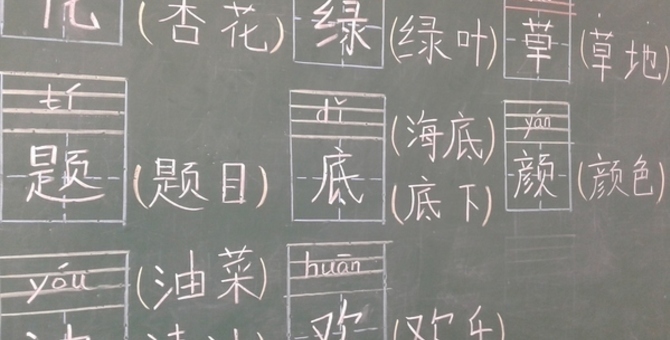 花 (杏花) 绿 (绿叶) 草 (草地)
tí dǐ yán
题 (题目) 底 (海底) (底下) 颜 (颜色)
yóu (油菜) huān
油 欢 (欢乐)